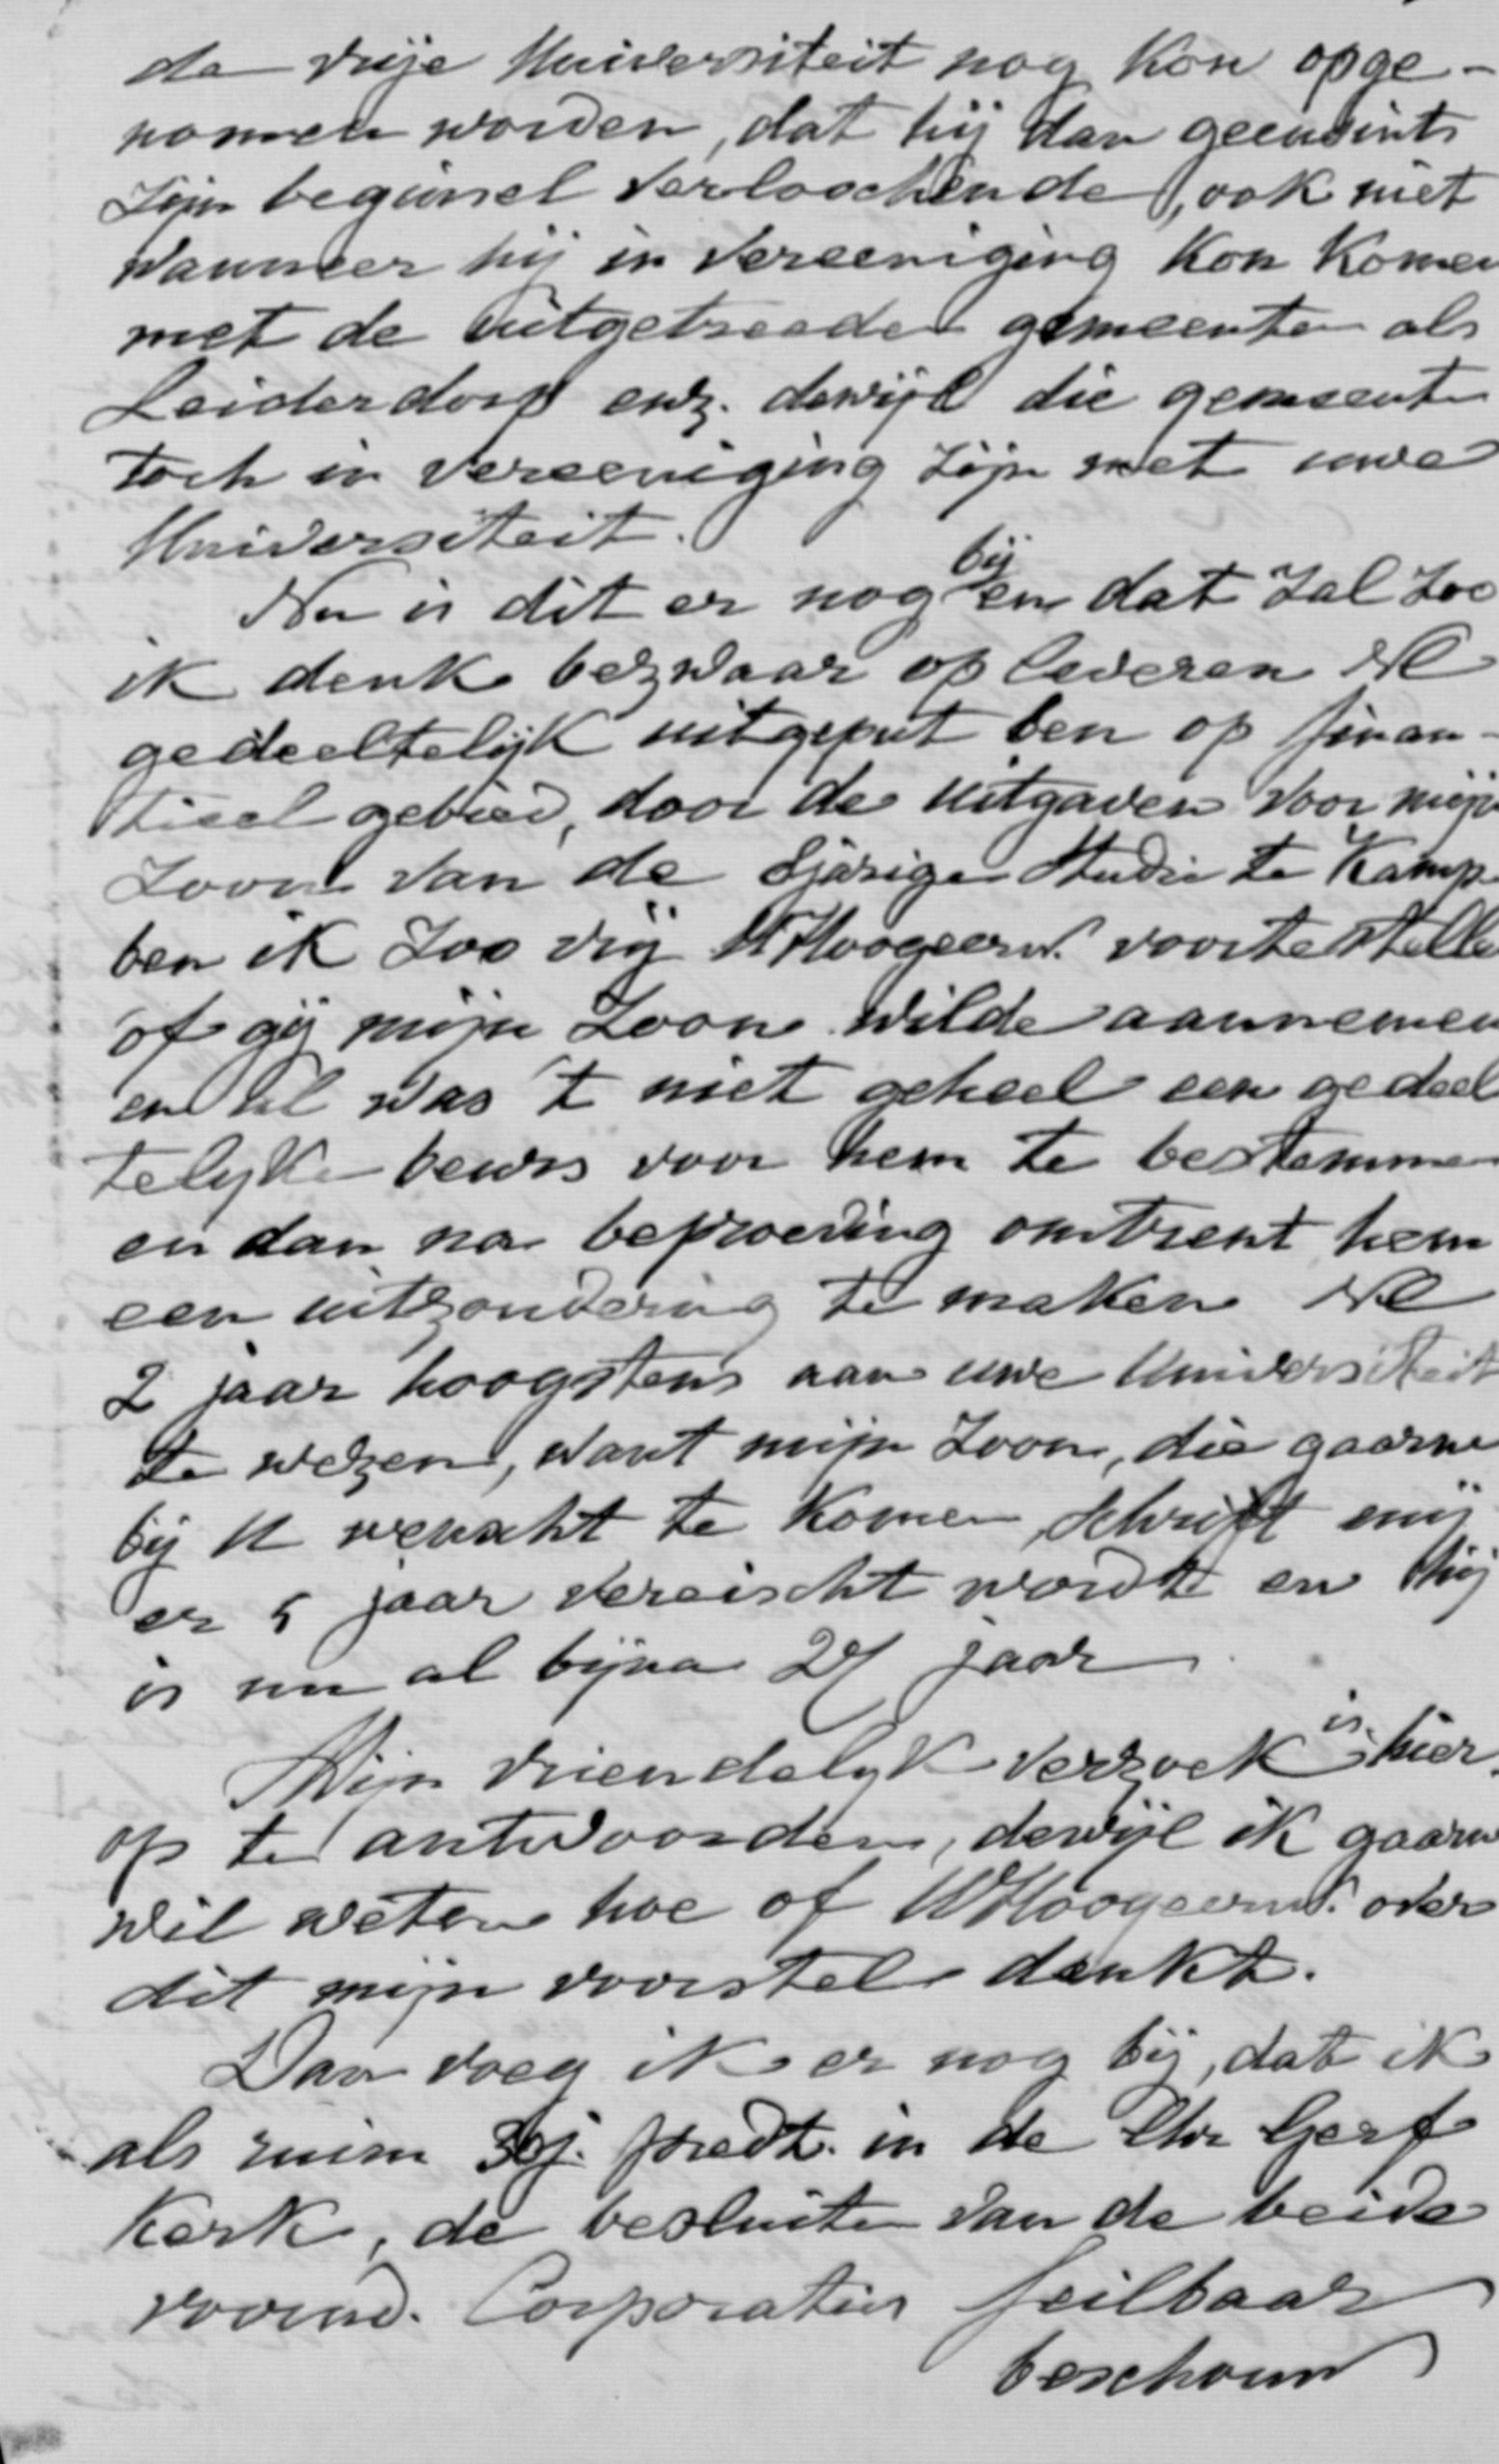 de vrije Universiteit nog kon opge-
nomen worden, dat hij dan geenszints
zijn beginsel verloochende, ook niet
wanneer hij in Vereeniging kon komen
met de uitgetreeden gemeenten als
Leiderdorp enz. dewijl die gemeenten
toch in vereeniging zijn met uwe
Universiteit.
Nu is dit er nog bij en dat zal zoo
ik denk bezwaar opleveren Nl
gedeeltelijk uitgeput ben op finan-
tieel gebied, door de uitgaven voor mijn
Zoon van de 8jarige Studie te Kamp.
ben ik zoo vrij UHoogeerw. voortestellen
of gij mijn Zoon wilde aannemen
en al was 't niet geheel een gedeel
telijke beurs voor hem te bestemmen
en dan na beproeving omtrent hem
een uitzondering te maken Nl
2 jaar hoogstens aan uwe Universiteit
te wezen, want mijn Zoon, die gaarne
bij U wenscht te komen, schrijft mij
er 5 jaar vereischt wordt en hij
is nu al bijna 27 jaar
Mijn vriendelijk verzoek is hier
op te antwoorden, dewijl ik gaarne
wil weten hoe of UHoogeerw. over
dit mijn voorstel denkt.
Dan voeg ik er nog bij, dat ik
als ruim j. predt. in de Chr Geref
Kerk, de besluiten van de beide
voornd. Corporatien feilbaar
beschouw